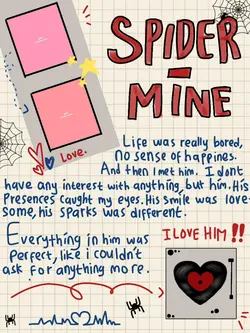 SPIDER
-
MINE
Love.
Life was really bored,
no sense of happines.
And then I met him. I dont
have any interest with anything, but him. His
Presences caught my eyes. His smile was love-
some, his sparks was different.
Everything in him was
Perfect, like i couldn't
ask for anything more.
I LOVE HIM !!